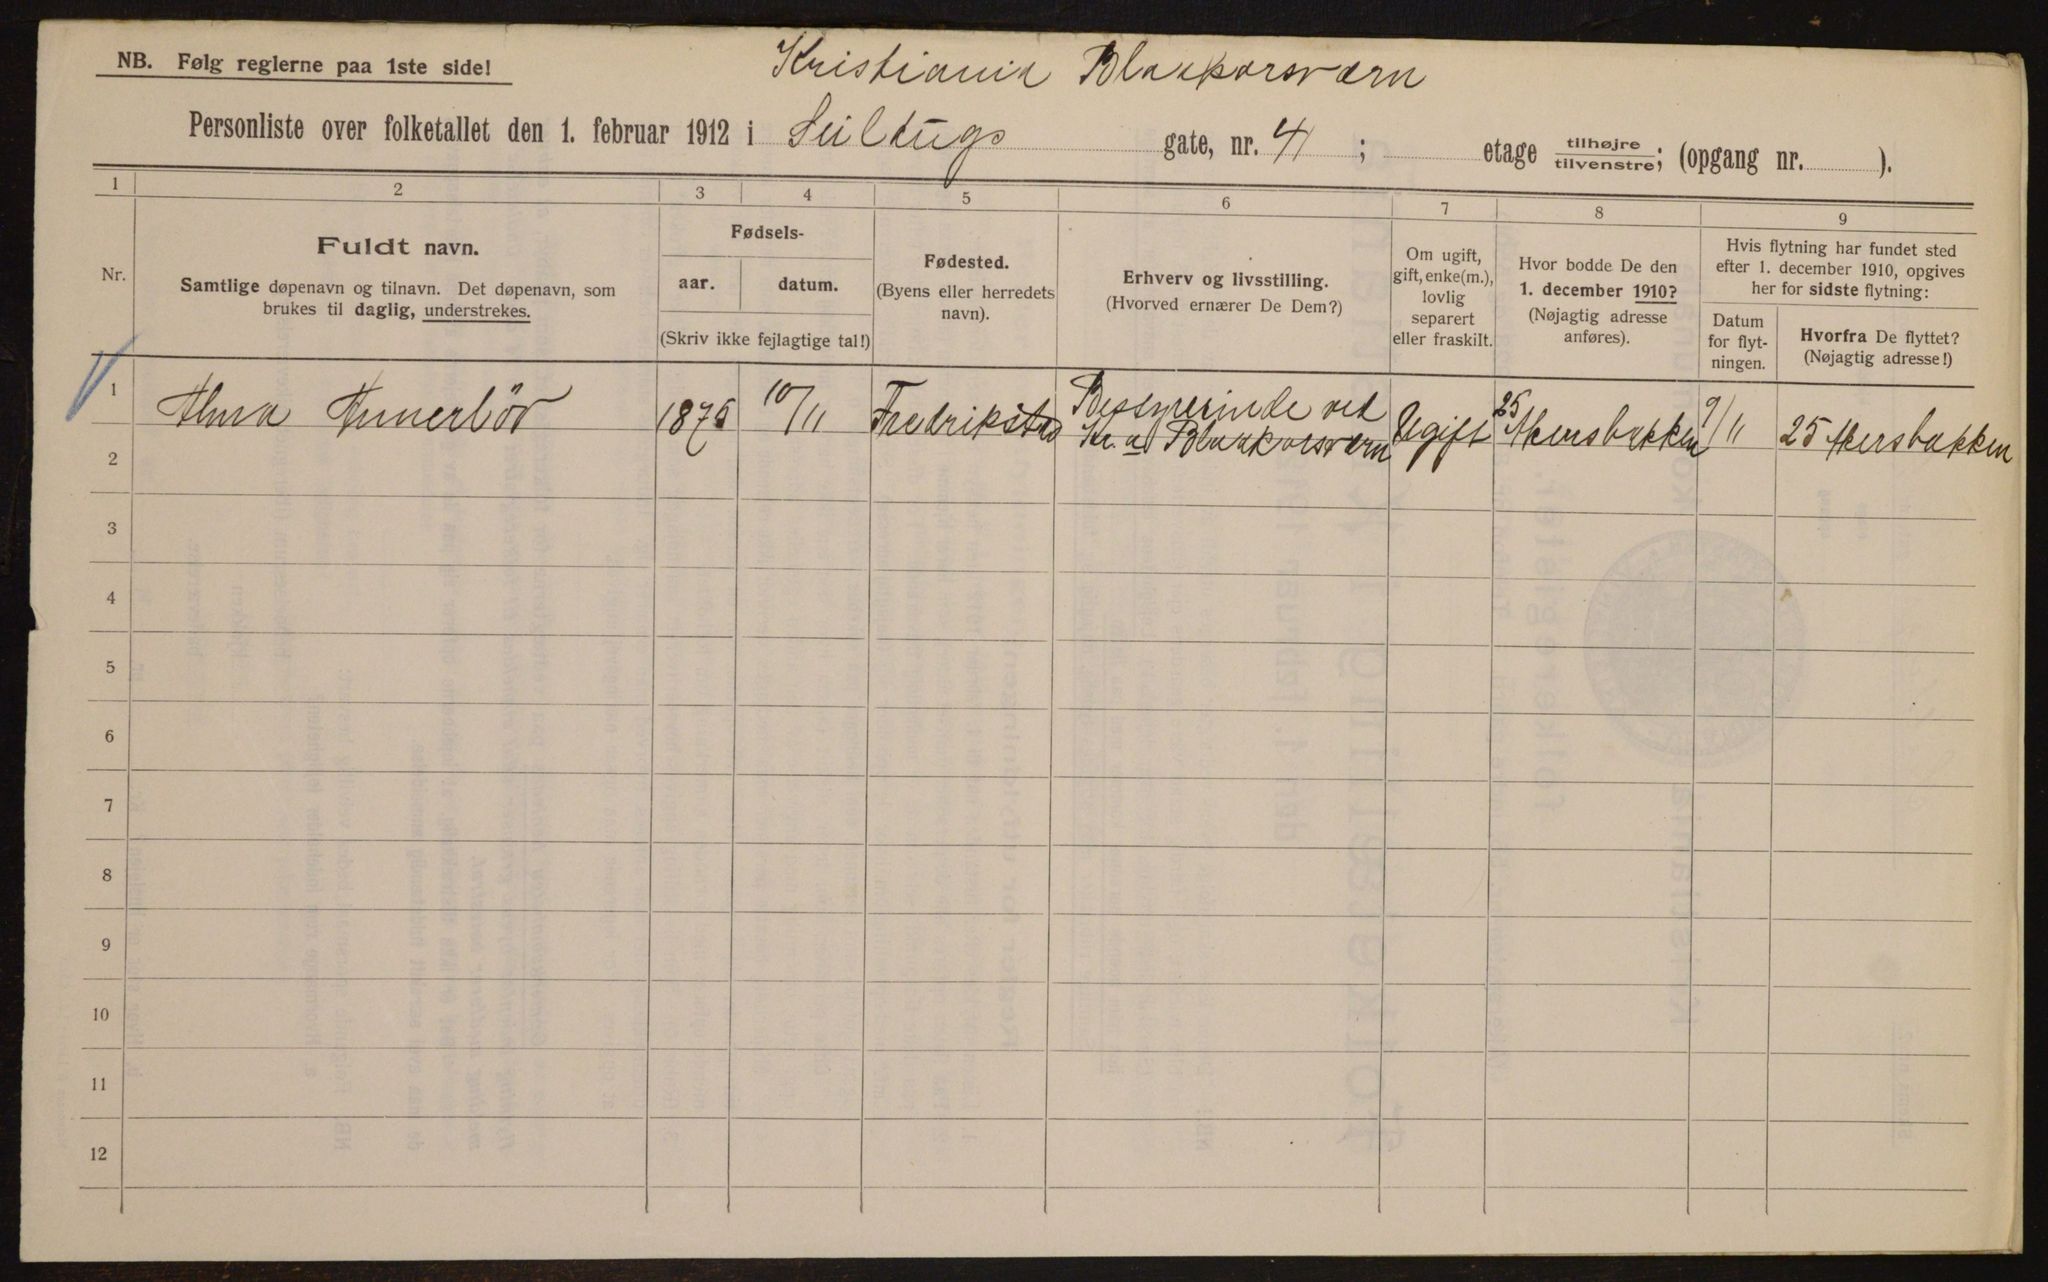 NB. Følg reglerne paa 1ste side!
Kristiania Blaakorsværn
Personliste over folketallet den 1. februar 1912 i Seildugs gate, nr. 41; etage tilhøjre tilvenstre; (opgang nr. ).
1 2 3 4 5 6 7 8 9
Nr.
Fuldt navn.
Samtlige døpenavn og tilnavn. Det døpenavn, som
brukes til daglig, understrekes.
Fødsels-
aar. datum.
(Skriv ikke fejlagtige tal!)
Fødested.
(Byens eller herredets
navn).
Erhverv og livsstilling.
(Hvorved ernærer De Dem?)
Om ugift,
gift, enke(m.),
lovlig
separert
eller fraskilt.
Hvor bodde De den
1. december 1910?
(Nøjagtig adresse
anføres).
Hvis flytning har fundet sted
efter 1. december 1910, opgives
her for sidste flytning:
Datum
for flyt-
ningen.
Hvorfra De flyttet?
(Nøjagtig adresse!)
1 Alma 1875 10/11 Fredrikstad Bestyrerinde ved
Kr.a Blaakorsværn Ugift 25 Akersbakken 9/11 25 Akersbakken
2
3
4
5
6
7
8
9
10
11
12